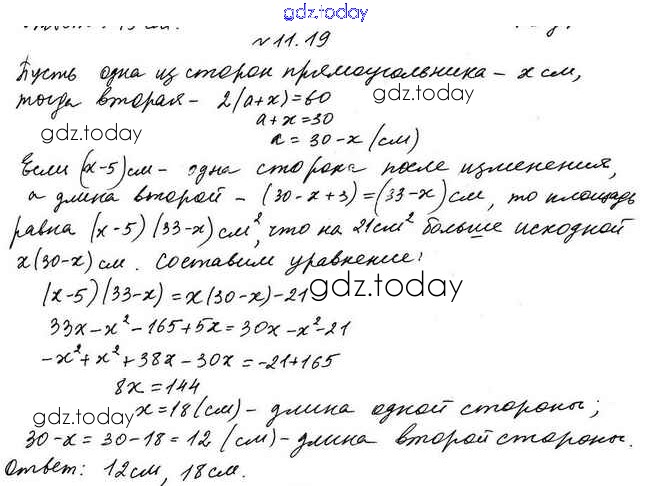 gdz.today
№ 11.19
Пусть одна из сторон прямоугольника – x см,
тогда вторая – 2(a+x)=60
gdz.today
a+x=30
gdz.today
a = 30-x (см)
Если (x-5) см – одна сторона после изменения,
а длина второй – (30-x+3)=(33-x) см, то площадь
равна (x-5)(33-x) см², что на 21 см² больше исходной
x(30-x) см. Составим уравнение:
(x-5)(33-x)=x(30-x)-21
gdz.today
33x-x²-165+5x=30x-x²-21
-x²+x²+38x-30x=-21+165
8x=144
gdz.today
x=18 (см) – длина одной стороны;
30-x=30-18=12 (см) – длина второй стороны.
Ответ: 12см, 18см.